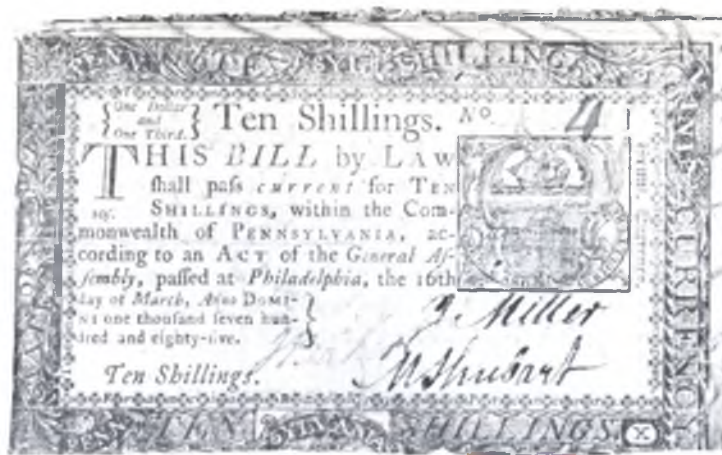 TEN SHILLINGS
One Dollar
and
One Third.
Ten Shillings. No. 4
THIS BILL by LAW
ſhall paſs current for TEN
10s. SHILLINGS, within the Com-
monwealth of PENNSYLVANIA, ac-
cording to an ACT of the General Aſ-
ſembly, paſſed at Philadelphia, the 16th
day of March, Anno DOMI-
NI one thouſand ſeven hun-
dred and eighty-five.
J. Miller
Ten Shillings.
CURRENCY
TEN SHILLINGS. X